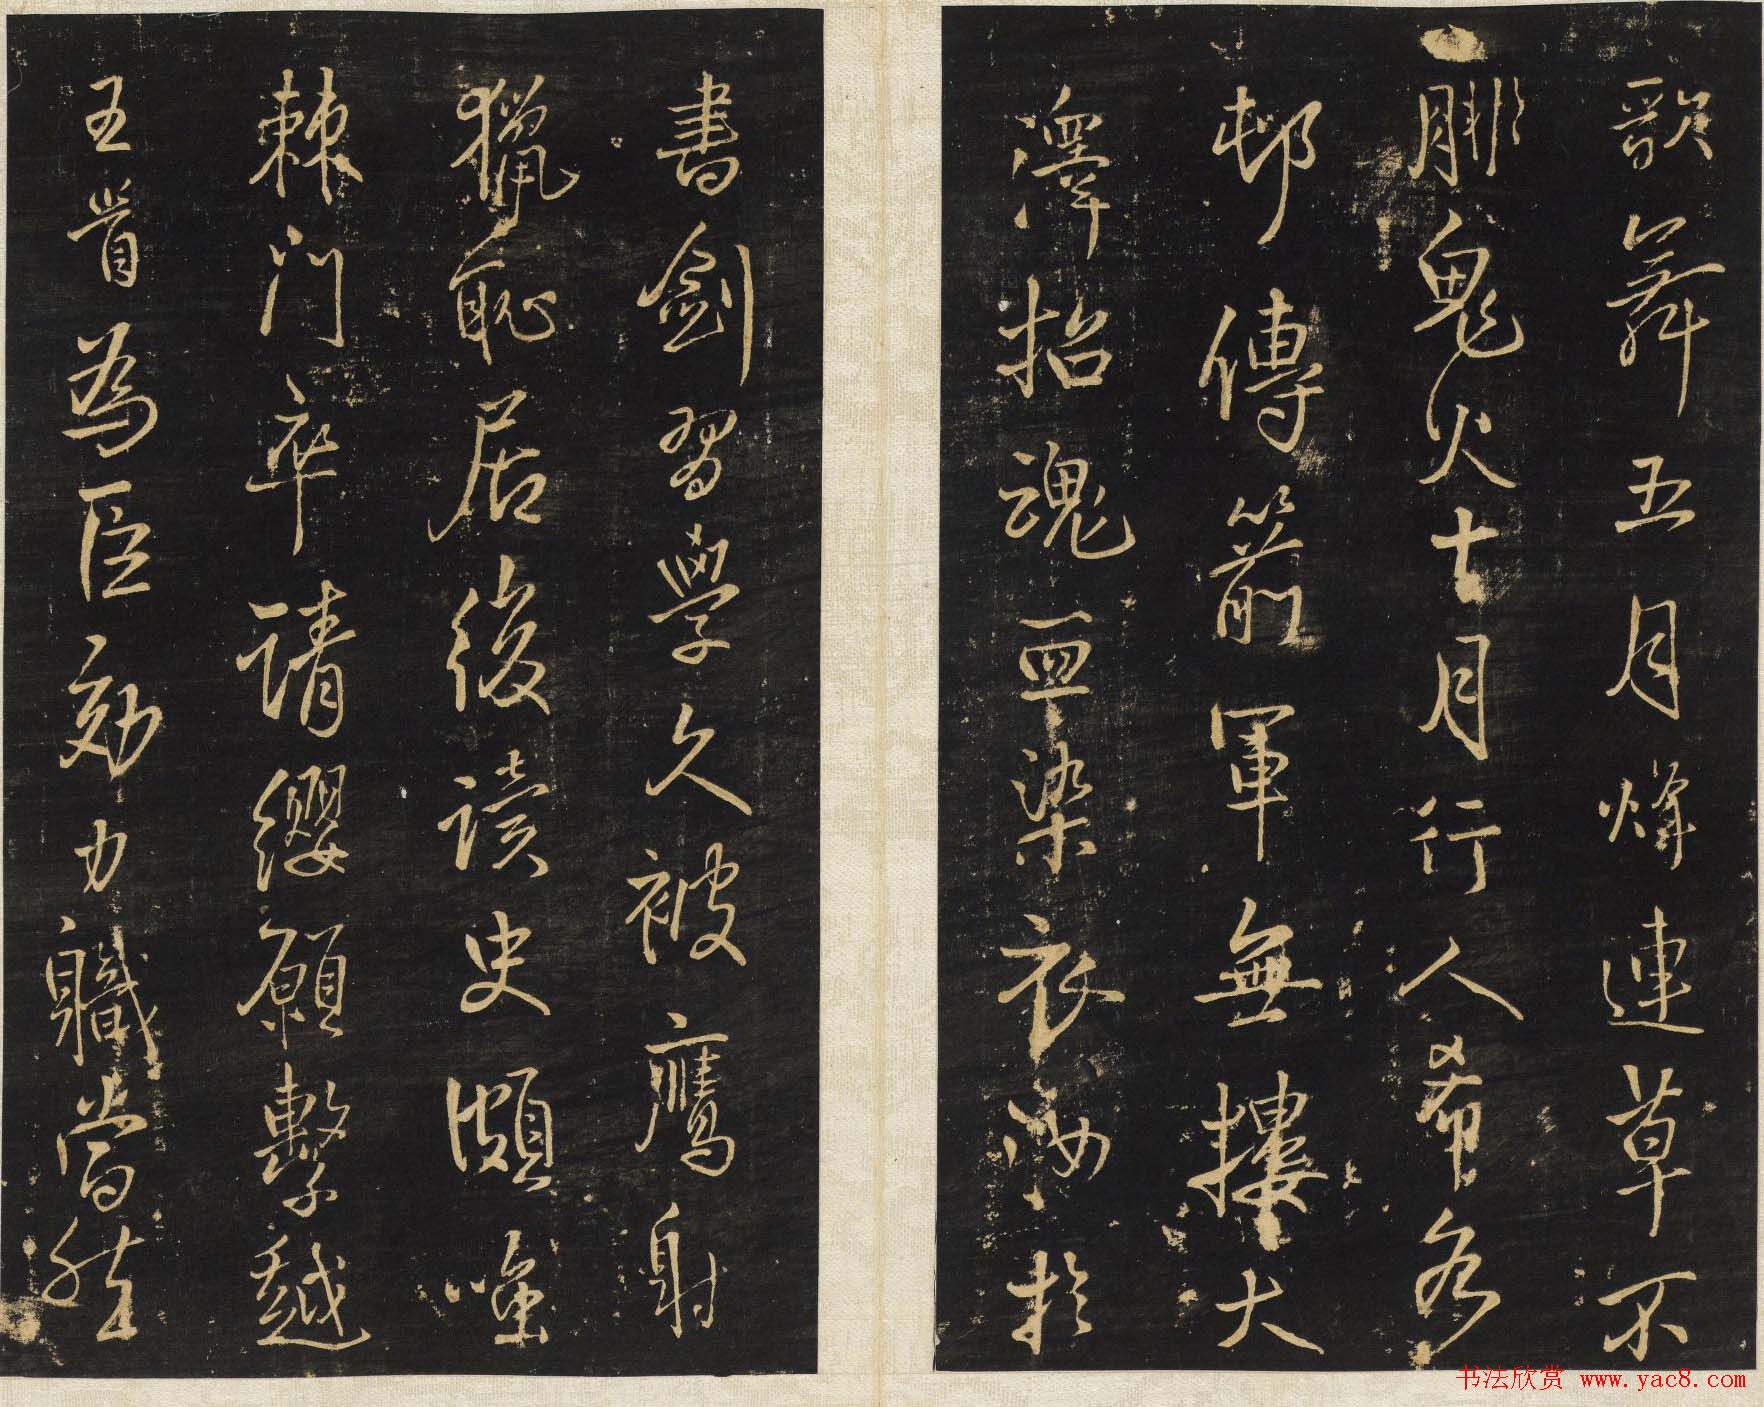 歌舞五月烽連草不
腓鬼火七月行人希各
邨傳箭軍無摟大
澤招魂血染衣汝於
書劍習學久被鷹射
獵恥居後讀史頗嗤
棘門卒請纓願繫越
王首為臣効力職當然
书法欣赏 www.yac8.com